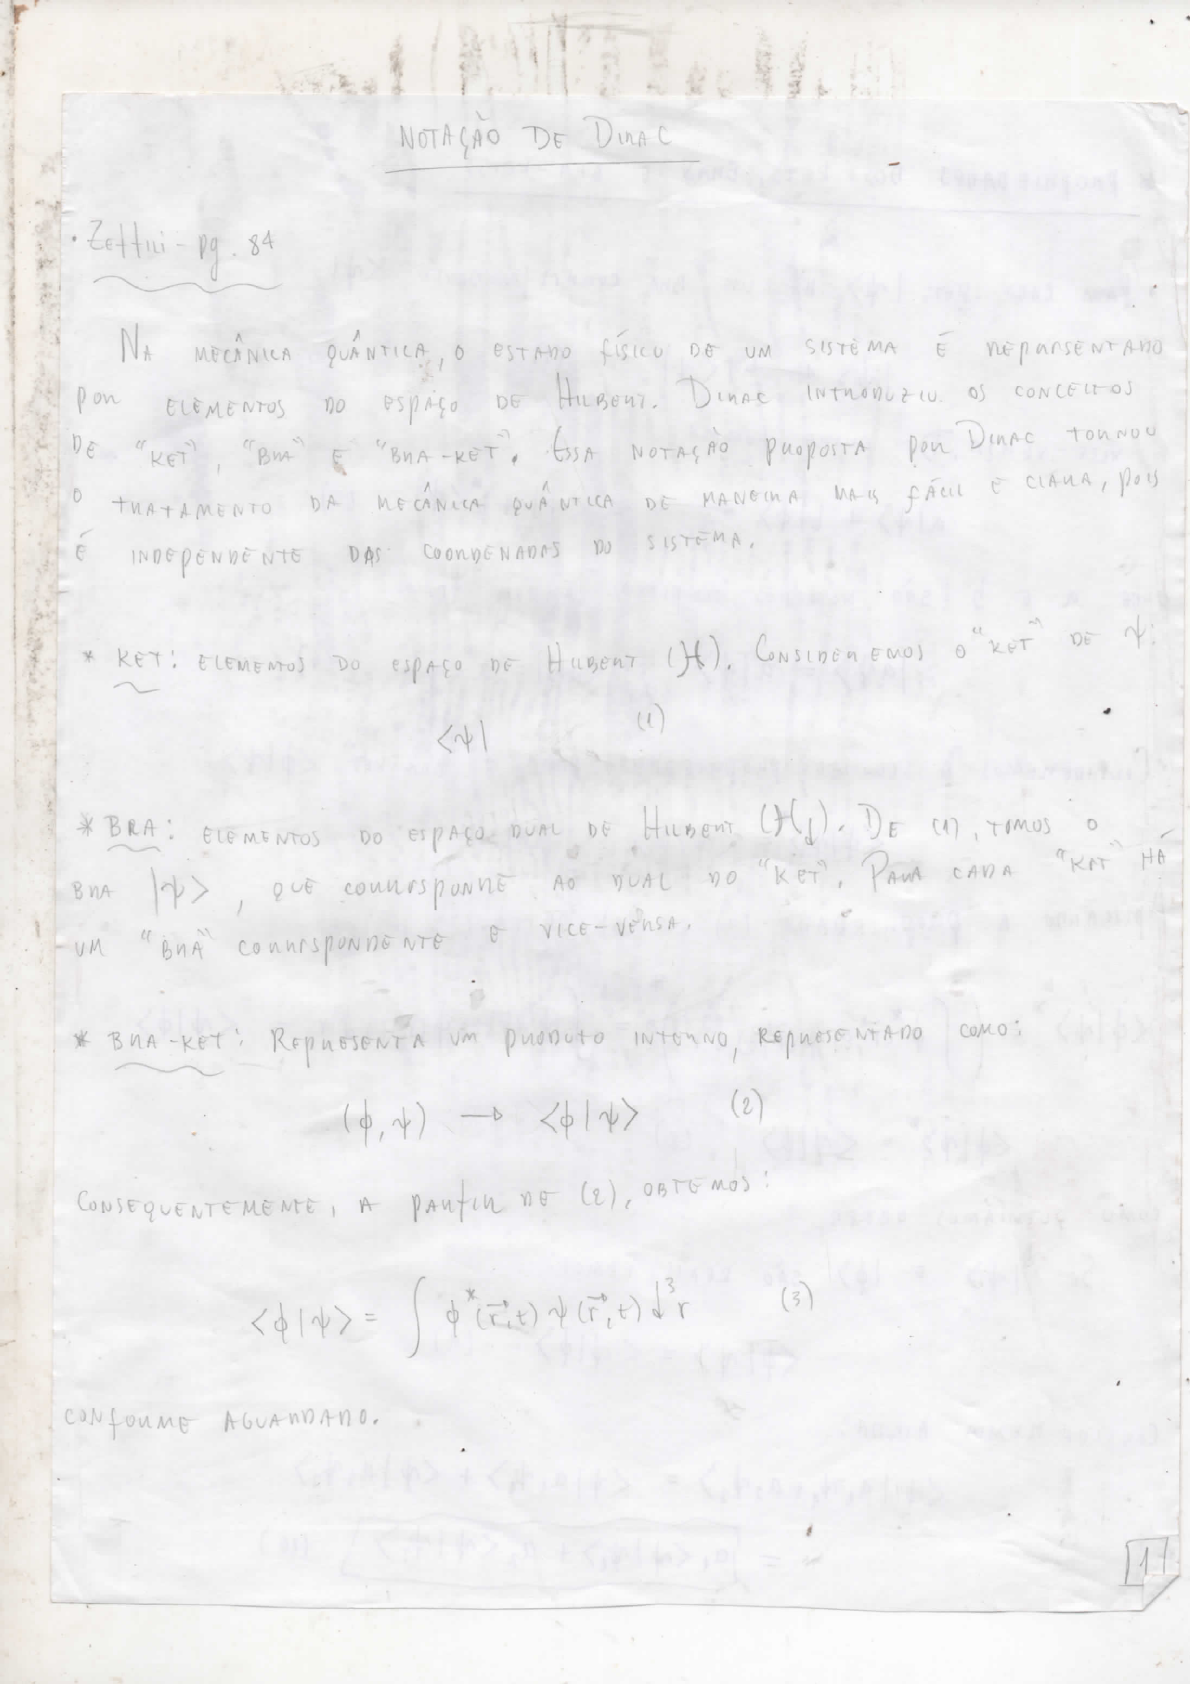 NOTAÇÃO DE DIRAC
• Zettili - pg. 84
NA MECÂNICA QUÂNTICA, O ESTADO FÍSICO DE UM SISTEMA É REPRESENTADO
POR ELEMENTOS DO ESPAÇO DE HILBERT. DIRAC INTRODUZIU OS CONCEITOS
DE "KET", "BRA" E "BRA-KET". ESSA NOTAÇÃO PROPOSTA POR DIRAC TORNOU
O TRATAMENTO DA MECÂNICA QUÂNTICA DE MANEIRA MAIS FÁCIL E CLARA, POIS
É INDEPENDENTE DAS COORDENADAS DO SISTEMA.
* KET: ELEMENTOS DO ESPAÇO DE HILBERT (ℋ). CONSIDEREMOS O "KET" DE ψ:
<ψ| (1)
* BRA: ELEMENTOS DO ESPAÇO DUAL DE HILBERT (ℋd). DE (1), TOMOS O
BRA |ψ>, QUE CORRESPONDE AO DUAL DO "KET". PARA CADA "KET" HÁ
UM "BRA" CORRESPONDENTE E VICE-VERSA.
* BRA-KET: REPRESENTA UM PRODUTO INTERNO, REPRESENTADO COMO:
(ϕ, ψ) → <ϕ|ψ> (2)
CONSEQUENTEMENTE, A PARTIR DE (2), OBTEMOS:
<ϕ|ψ> = ∫ ϕ*(r⃗,t) ψ(r⃗,t) d³r (3)
CONFORME AGUARDADO.
1